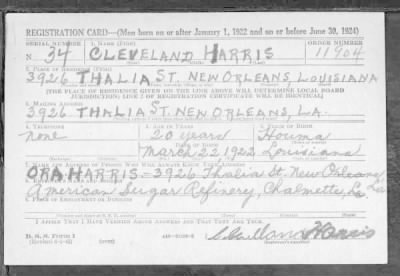 REGISTRATION CARD—(Men born on or after January 1, 1922 and on or before June 30, 1924)
SERIAL NUMBER 1. NAME (Print) ORDER NUMBER
N 34 CLEVELAND HARRIS 11904
2. PLACE OF RESIDENCE (Print)
3926 THALIA ST. NEW ORLEANS, LOUISIANA
[THE PLACE OF RESIDENCE GIVEN ON THE LINE ABOVE WILL DETERMINE LOCAL BOARD
JURISDICTION; LINE 2 OF REGISTRATION CERTIFICATE WILL BE IDENTICAL]
3. MAILING ADDRESS
3926 THALIA ST. NEW ORLEANS, LA.
4. TELEPHONE 5. AGE IN YEARS 6. PLACE OF BIRTH
none 20 years Houma
DATE OF BIRTH
March 22 1922 Louisiana
7. NAME AND ADDRESS OF PERSON WHO WILL ALWAYS KNOW YOUR ADDRESS
ORA HARRIS - 3926 Thalia St. New Orleans La
8. PLACE OF EMPLOYMENT OR BUSINESS
American Sugar Refinery, Chalmette, La
I AFFIRM THAT I HAVE VERIFIED ABOVE ANSWERS AND THAT THEY ARE TRUE.
D. S. S. Form 1
Harris